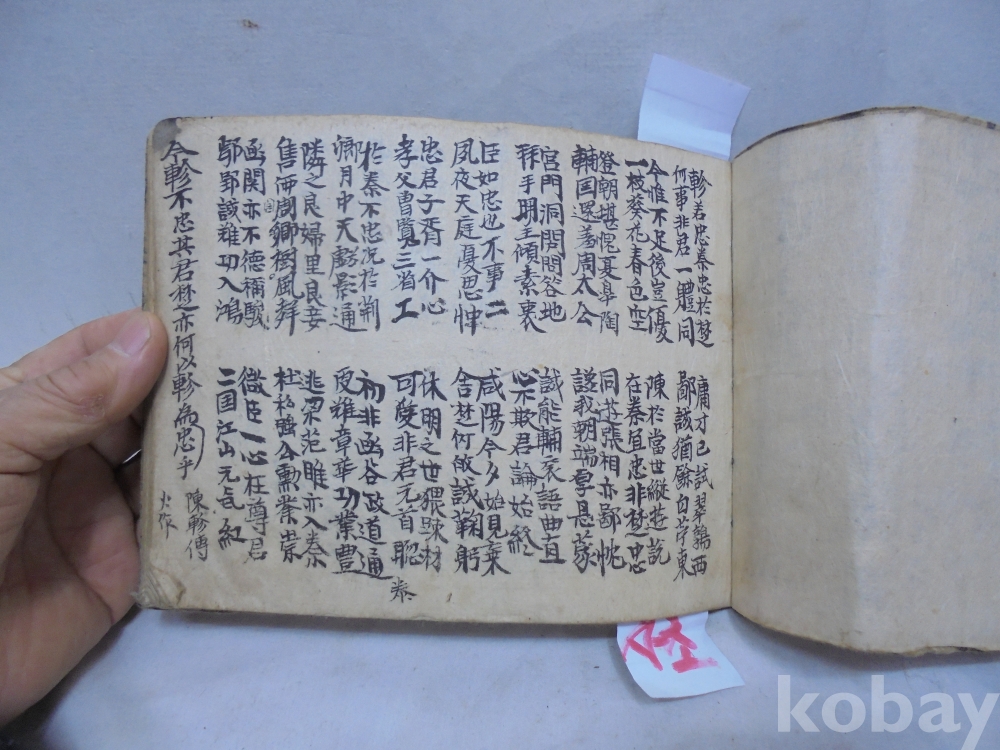 軫若忠秦忠於楚
何事非君一體同
今惟不足後豈優
一枝葵花春色空
登朝堪愧夏皐陶
輔国還羞周太公
宮門洞闢問咨地
拜手明主傾素衷
臣如忠也不事二
夙夜天庭憂思忡
忠君子胥一介心
孝父曹覽三省工
於秦不忠况於荊
湖月中天虧影通
隣之良婦里良妾
售而國卿樹風聲
函関亦不德稱驥
鄢郢該難功入鴻
庸才已試翠鵝西
鄙談猶餘白茅東
陳於當世縱遊說
在秦宜忠非楚忠
同遊張相亦鄙忱
我朝端厚恩蒙
誠能輔哀語曲直
心不欺君論始終
咸陽今夕始見棄
舍楚何敢誠鞠躬
休明之世猥踈材
可愛非君元首聡
初非函谷政道通
難章華功業豊
逃梁范雎亦入秦
杜私韓公勳業崇
微臣一心在尊君
二国江山元気紅
秦
今軫不忠其君楚亦何以軫為忠乎
陳軫傳
火作
kobay